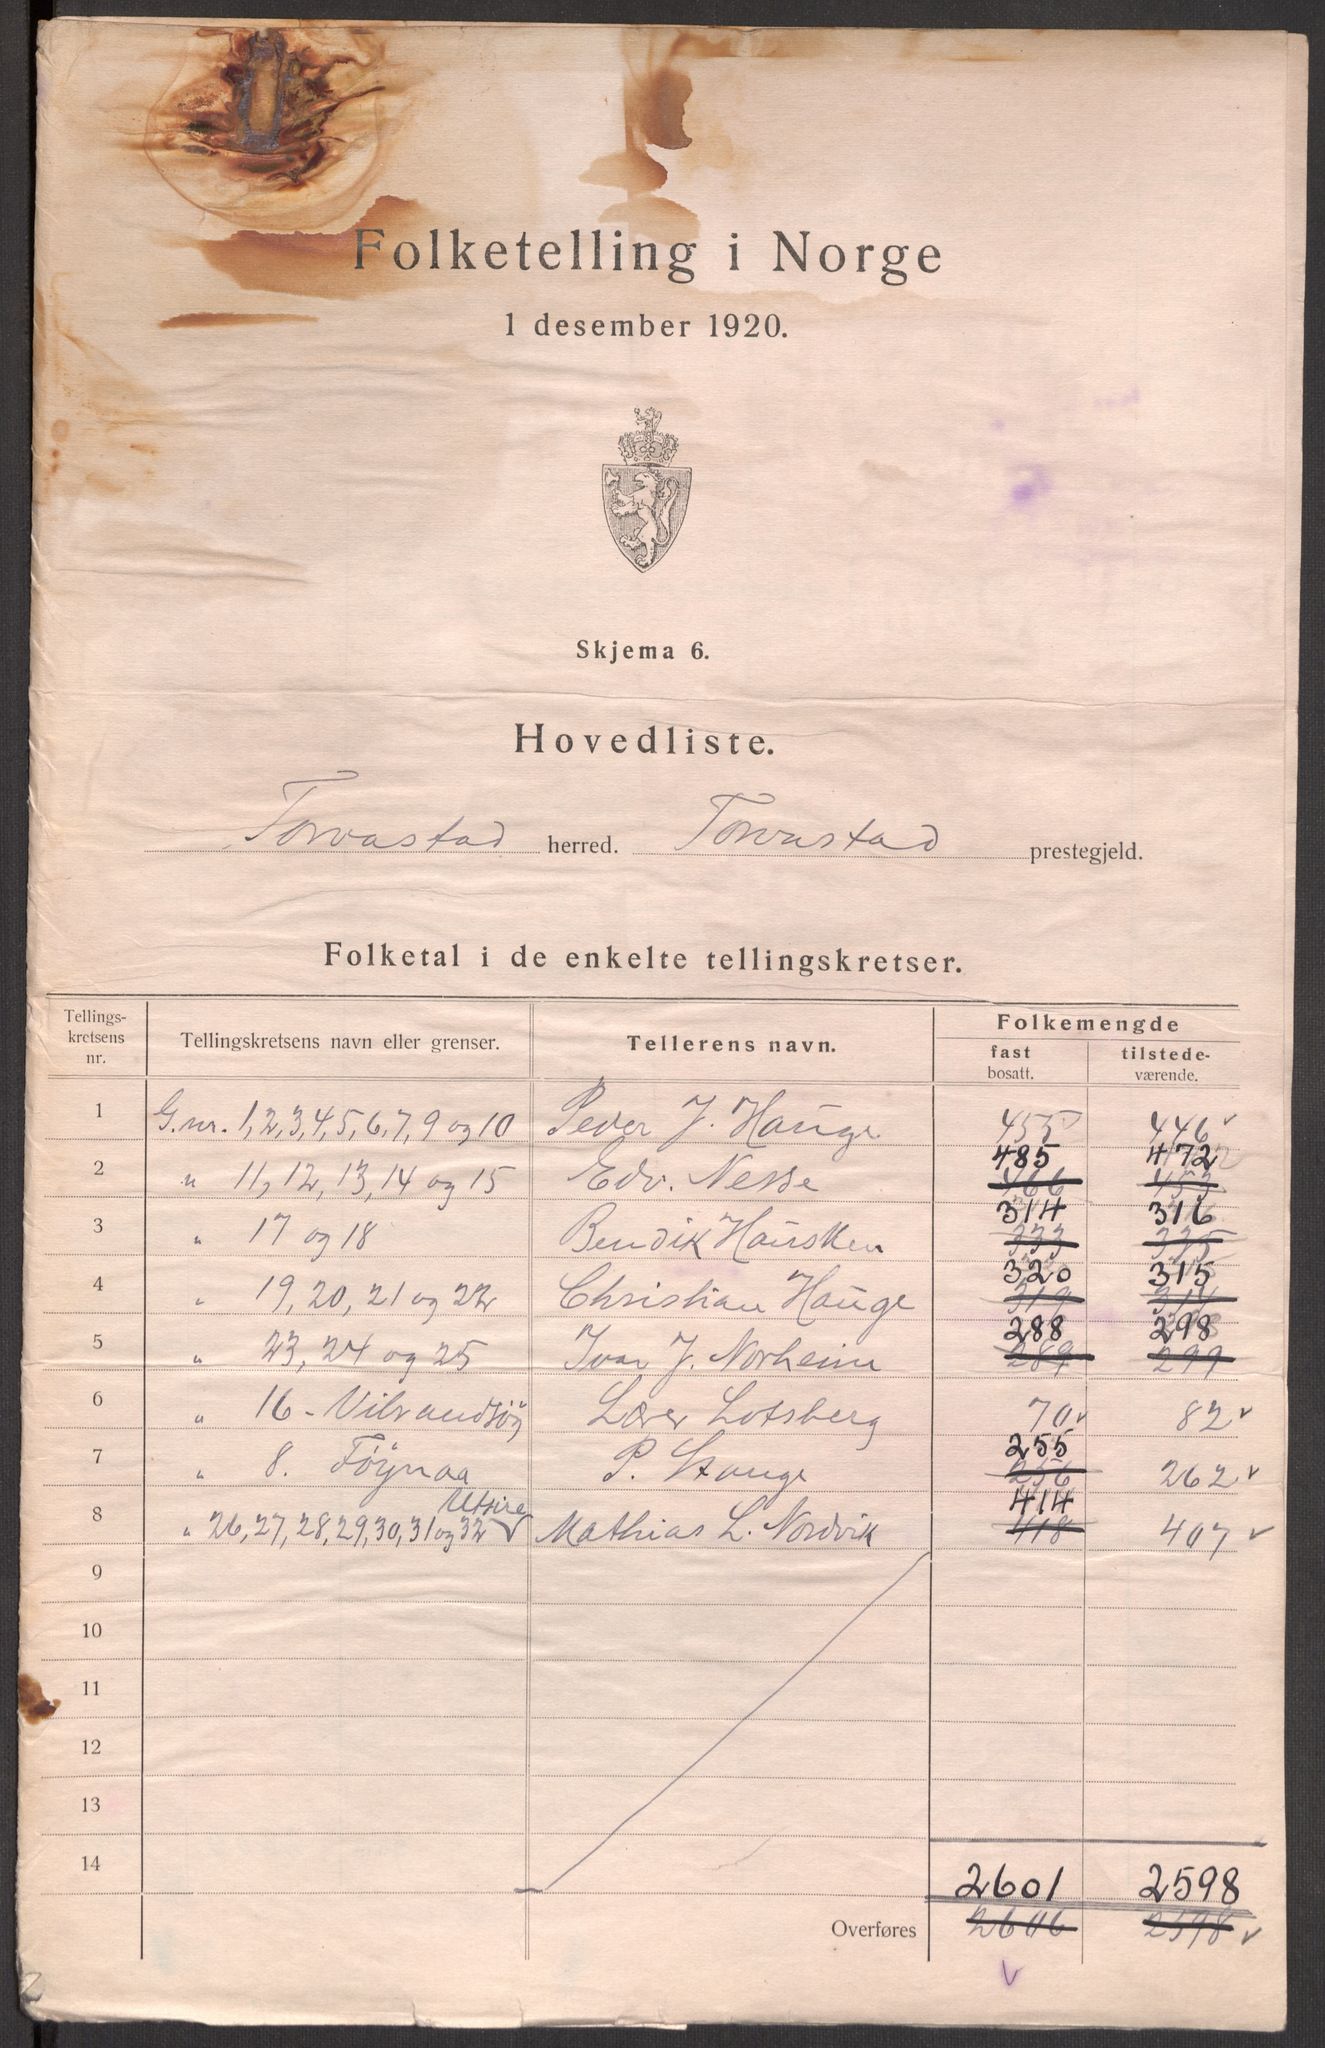 Folketelling i Norge
1 desember 1920.
Skjema 6.
Hovedliste.
Torvastad herred. Torvastad prestegjeld.
Folketal i de enkelte tellingskretser.
Tellings-kretsens nr. Tellingskretsens navn eller grenser. Tellerens navn. Folkemengde fast bosatt. tilstede-værende.
1 G.nr. 1, 2, 3, 4, 5, 6, 7, 9 og 10 Peder J. Hauge 455 446
485 472
2 " 11, 12, 13, 14 og 15 Edv. Nesse 466 453
314 316
3 " 17 og 18 Bendik Hausken 333 335
320 315
4 " 19, 20, 21 og 22 Christian Hauge 319 314
288 298
5 " 23, 24 og 25 Ivar J. Norheim 289 299
6 " 16 - Vibrandsöy Lærer Lotsberg 70 82
255
7 " 8. Föynaa P. Stange 256 262
Utsire 414
8 " 26, 27, 28, 29, 30, 31 og 32 Mathias L. Nordvik 418 407
9
10
11
12
13
14 2601 2598
Overføres 2606 2598